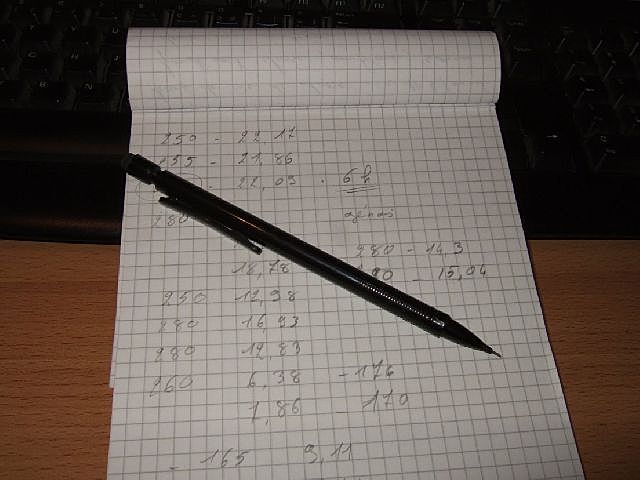 250 - 22,17
255 - 21,86
- 22,03 . 5h
280
280 - 14,3
18,78
90 - 15,04
250 12,98
280 16,93
280 12,83
260 6,38 - 176
1,86 170
- 165 9,11